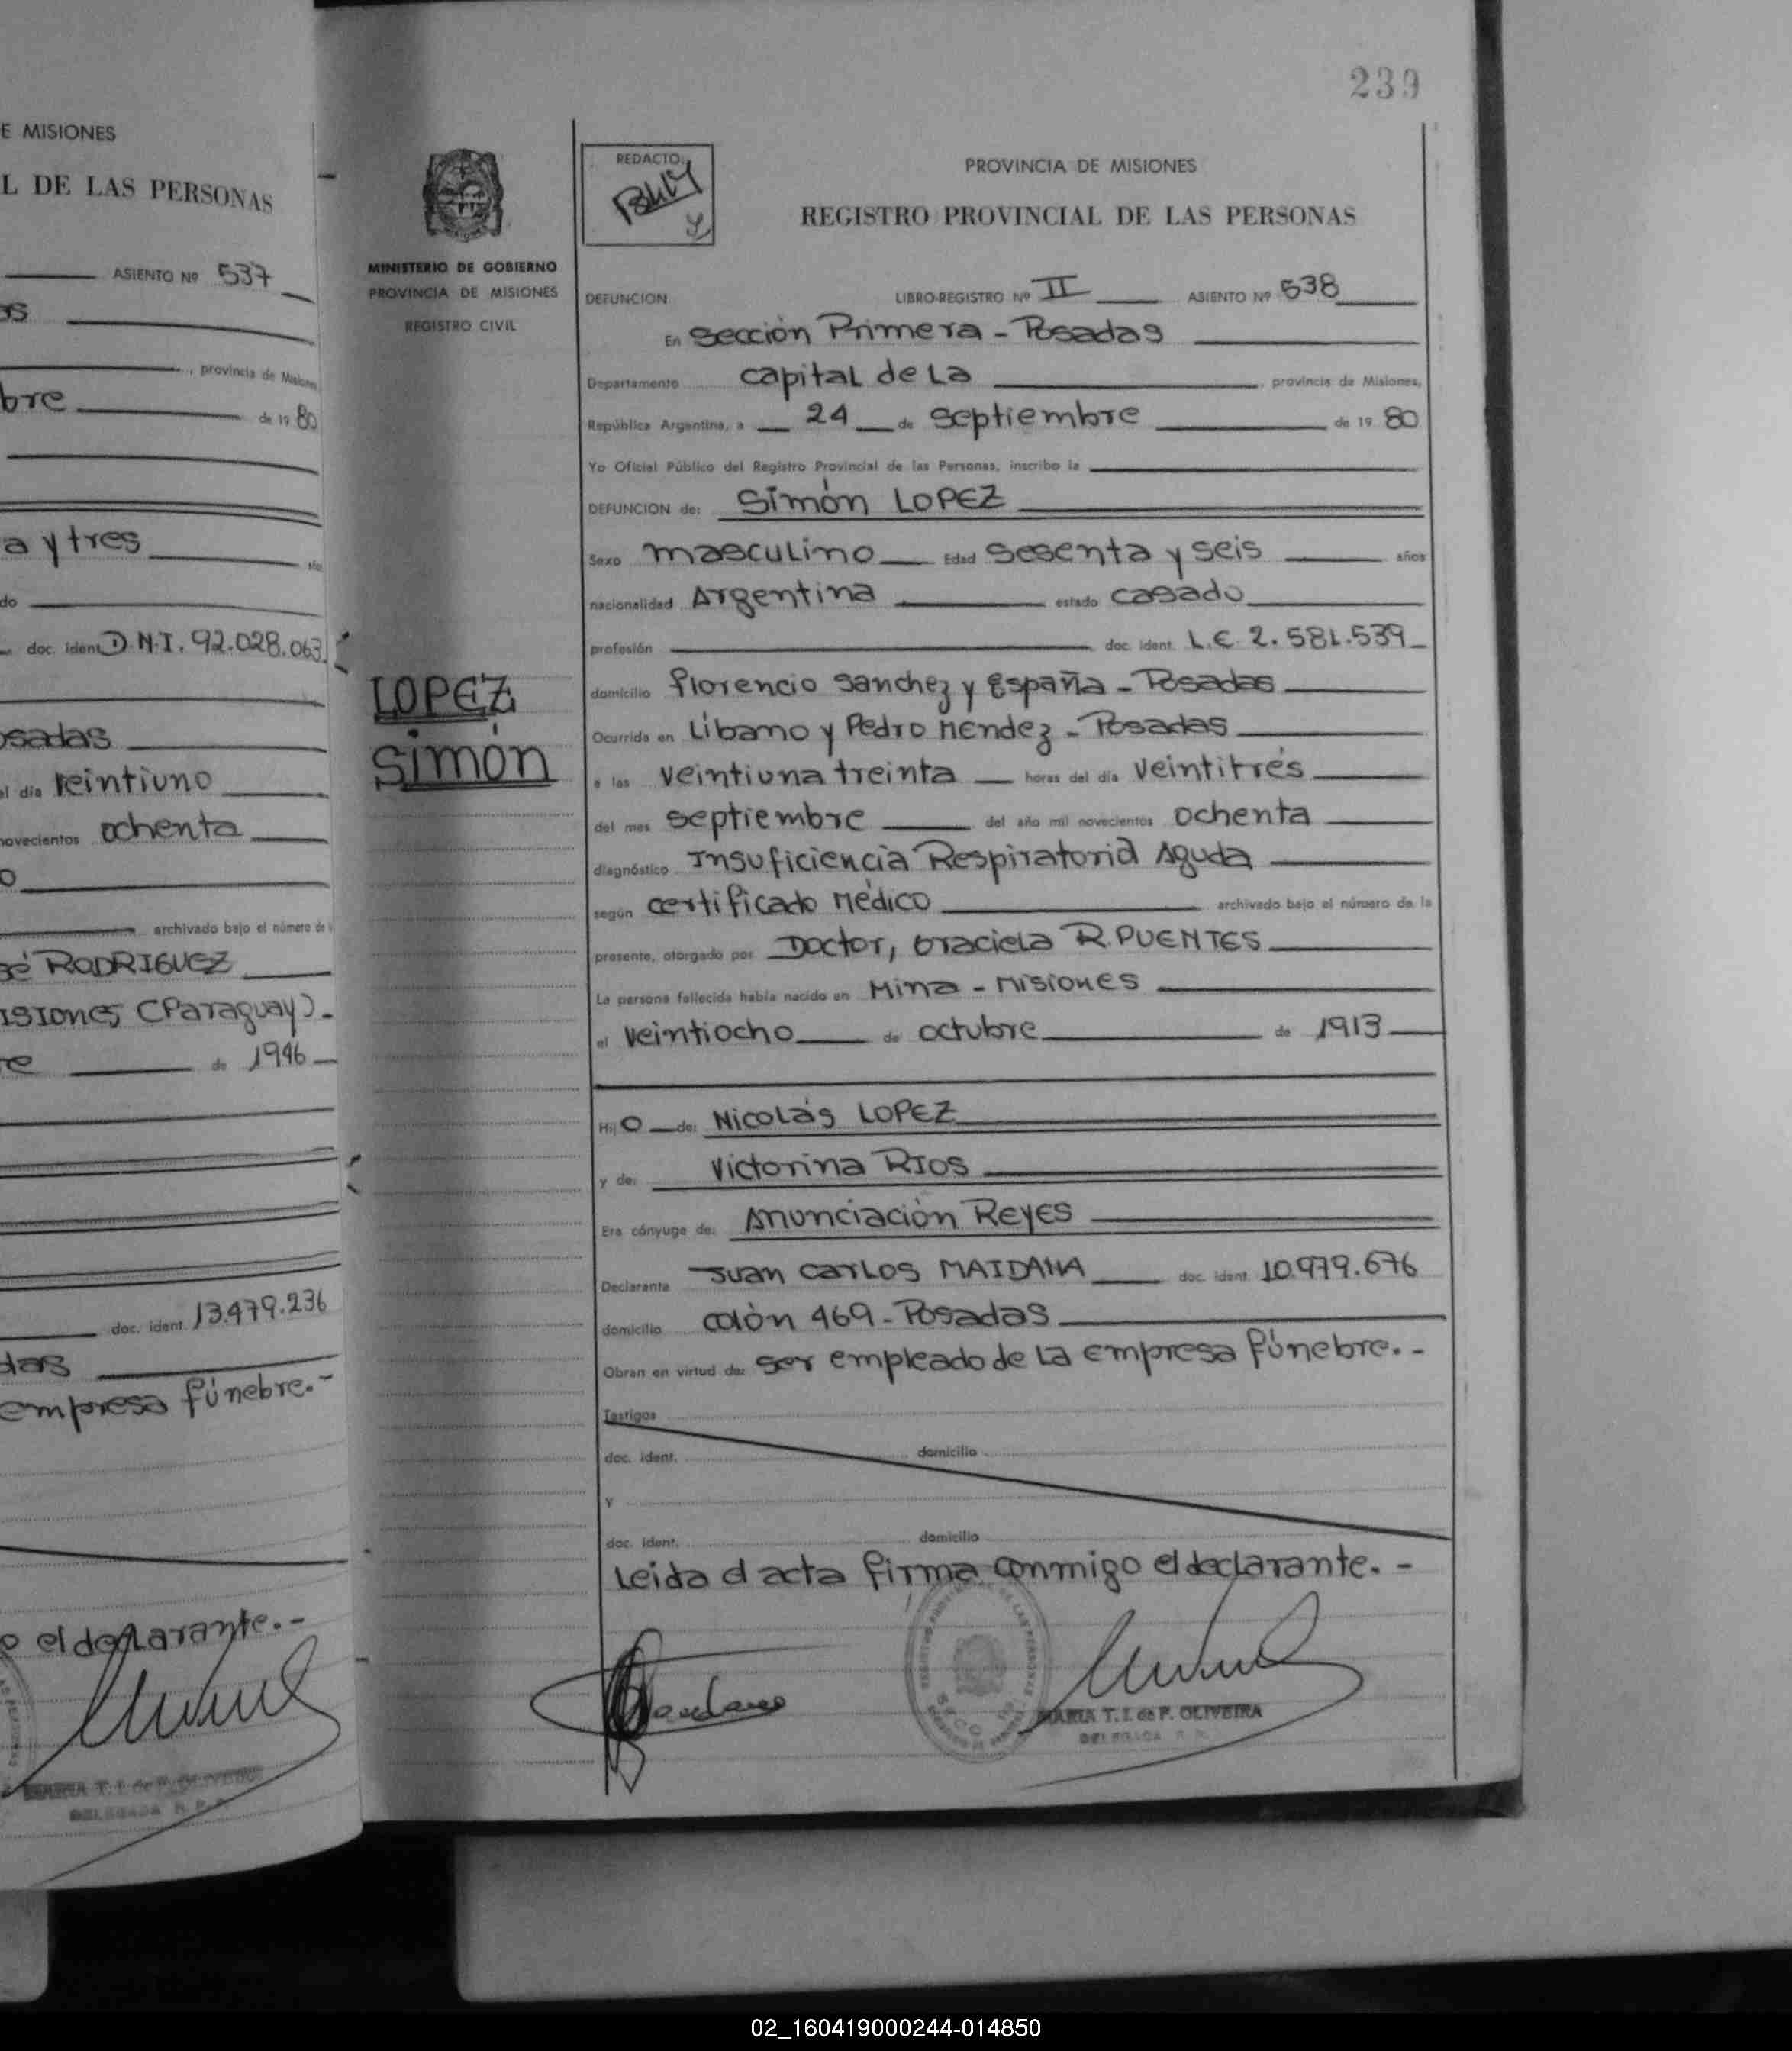 E MISIONES
L DE LAS PERSONAS
ASIENTO Nº 537
os
, provincia de Misiones
bre de 19 80
a y tres
do
doc. ident D.N.I. 92.028.063
osadas
el día veintiuno
novecientos ochenta
o
archivado bajo el número de
sé RODRIGUEZ
ISIONES (Paraguay).
re de 1946
doc. ident. 13.479.236
das
empresa fúnebre.-
o el declarante.-
MARIA T. I. de F. OLIVEIRA
DELEGADA R. P.
239
MINISTERIO DE GOBIERNO
PROVINCIA DE MISIONES
REGISTRO CIVIL
LOPEZ
Simón
REDACTO:
PROVINCIA DE MISIONES
REGISTRO PROVINCIAL DE LAS PERSONAS
DEFUNCION LIBRO-REGISTRO Nº II ASIENTO Nº 538
En Sección Primera - Posadas
Departamento capital de La , provincia de Misiones,
República Argentina, a 24 de septiembre de 19 80
Yo Oficial Público del Registro Provincial de las Personas, inscribo la
DEFUNCION de: Simón LOPEZ
Sexo masculino Edad sesenta y seis años
nacionalidad Argentina estado casado
profesión doc. ident. L.E. 2.581.539
domicilio Florencio Sanchez y España - Posadas
Ocurrida en Líbano y Pedro Mendez - Posadas
a las veintiuna treinta horas del día veintitrés
del mes septiembre del año mil novecientos ochenta
diagnóstico Insuficiencia Respiratoria Aguda
según certificado Médico archivado bajo el número de la
presente, otorgado por Doctor, Graciela R. PUENTES
La persona fallecida había nacido en Mina - Misiones
el veintiocho de octubre de 1913
Hij o de: Nicolás LOPEZ
y de: Victorina RIOS
Era cónyuge de: Anunciación REYES
Declarante Juan Carlos MAIDANA doc. ident. 10.979.676
domicilio colón 469 - Posadas
Obran en virtud de: ser empleado de La empresa fúnebre.-
Testigos
doc. ident. domicilio
Y
doc. ident. domicilio
Leida el acta firma conmigo el declarante.-
MARIA T. I. de F. OLIVEIRA
DELEGADA R. P.
02_160419000244-014850